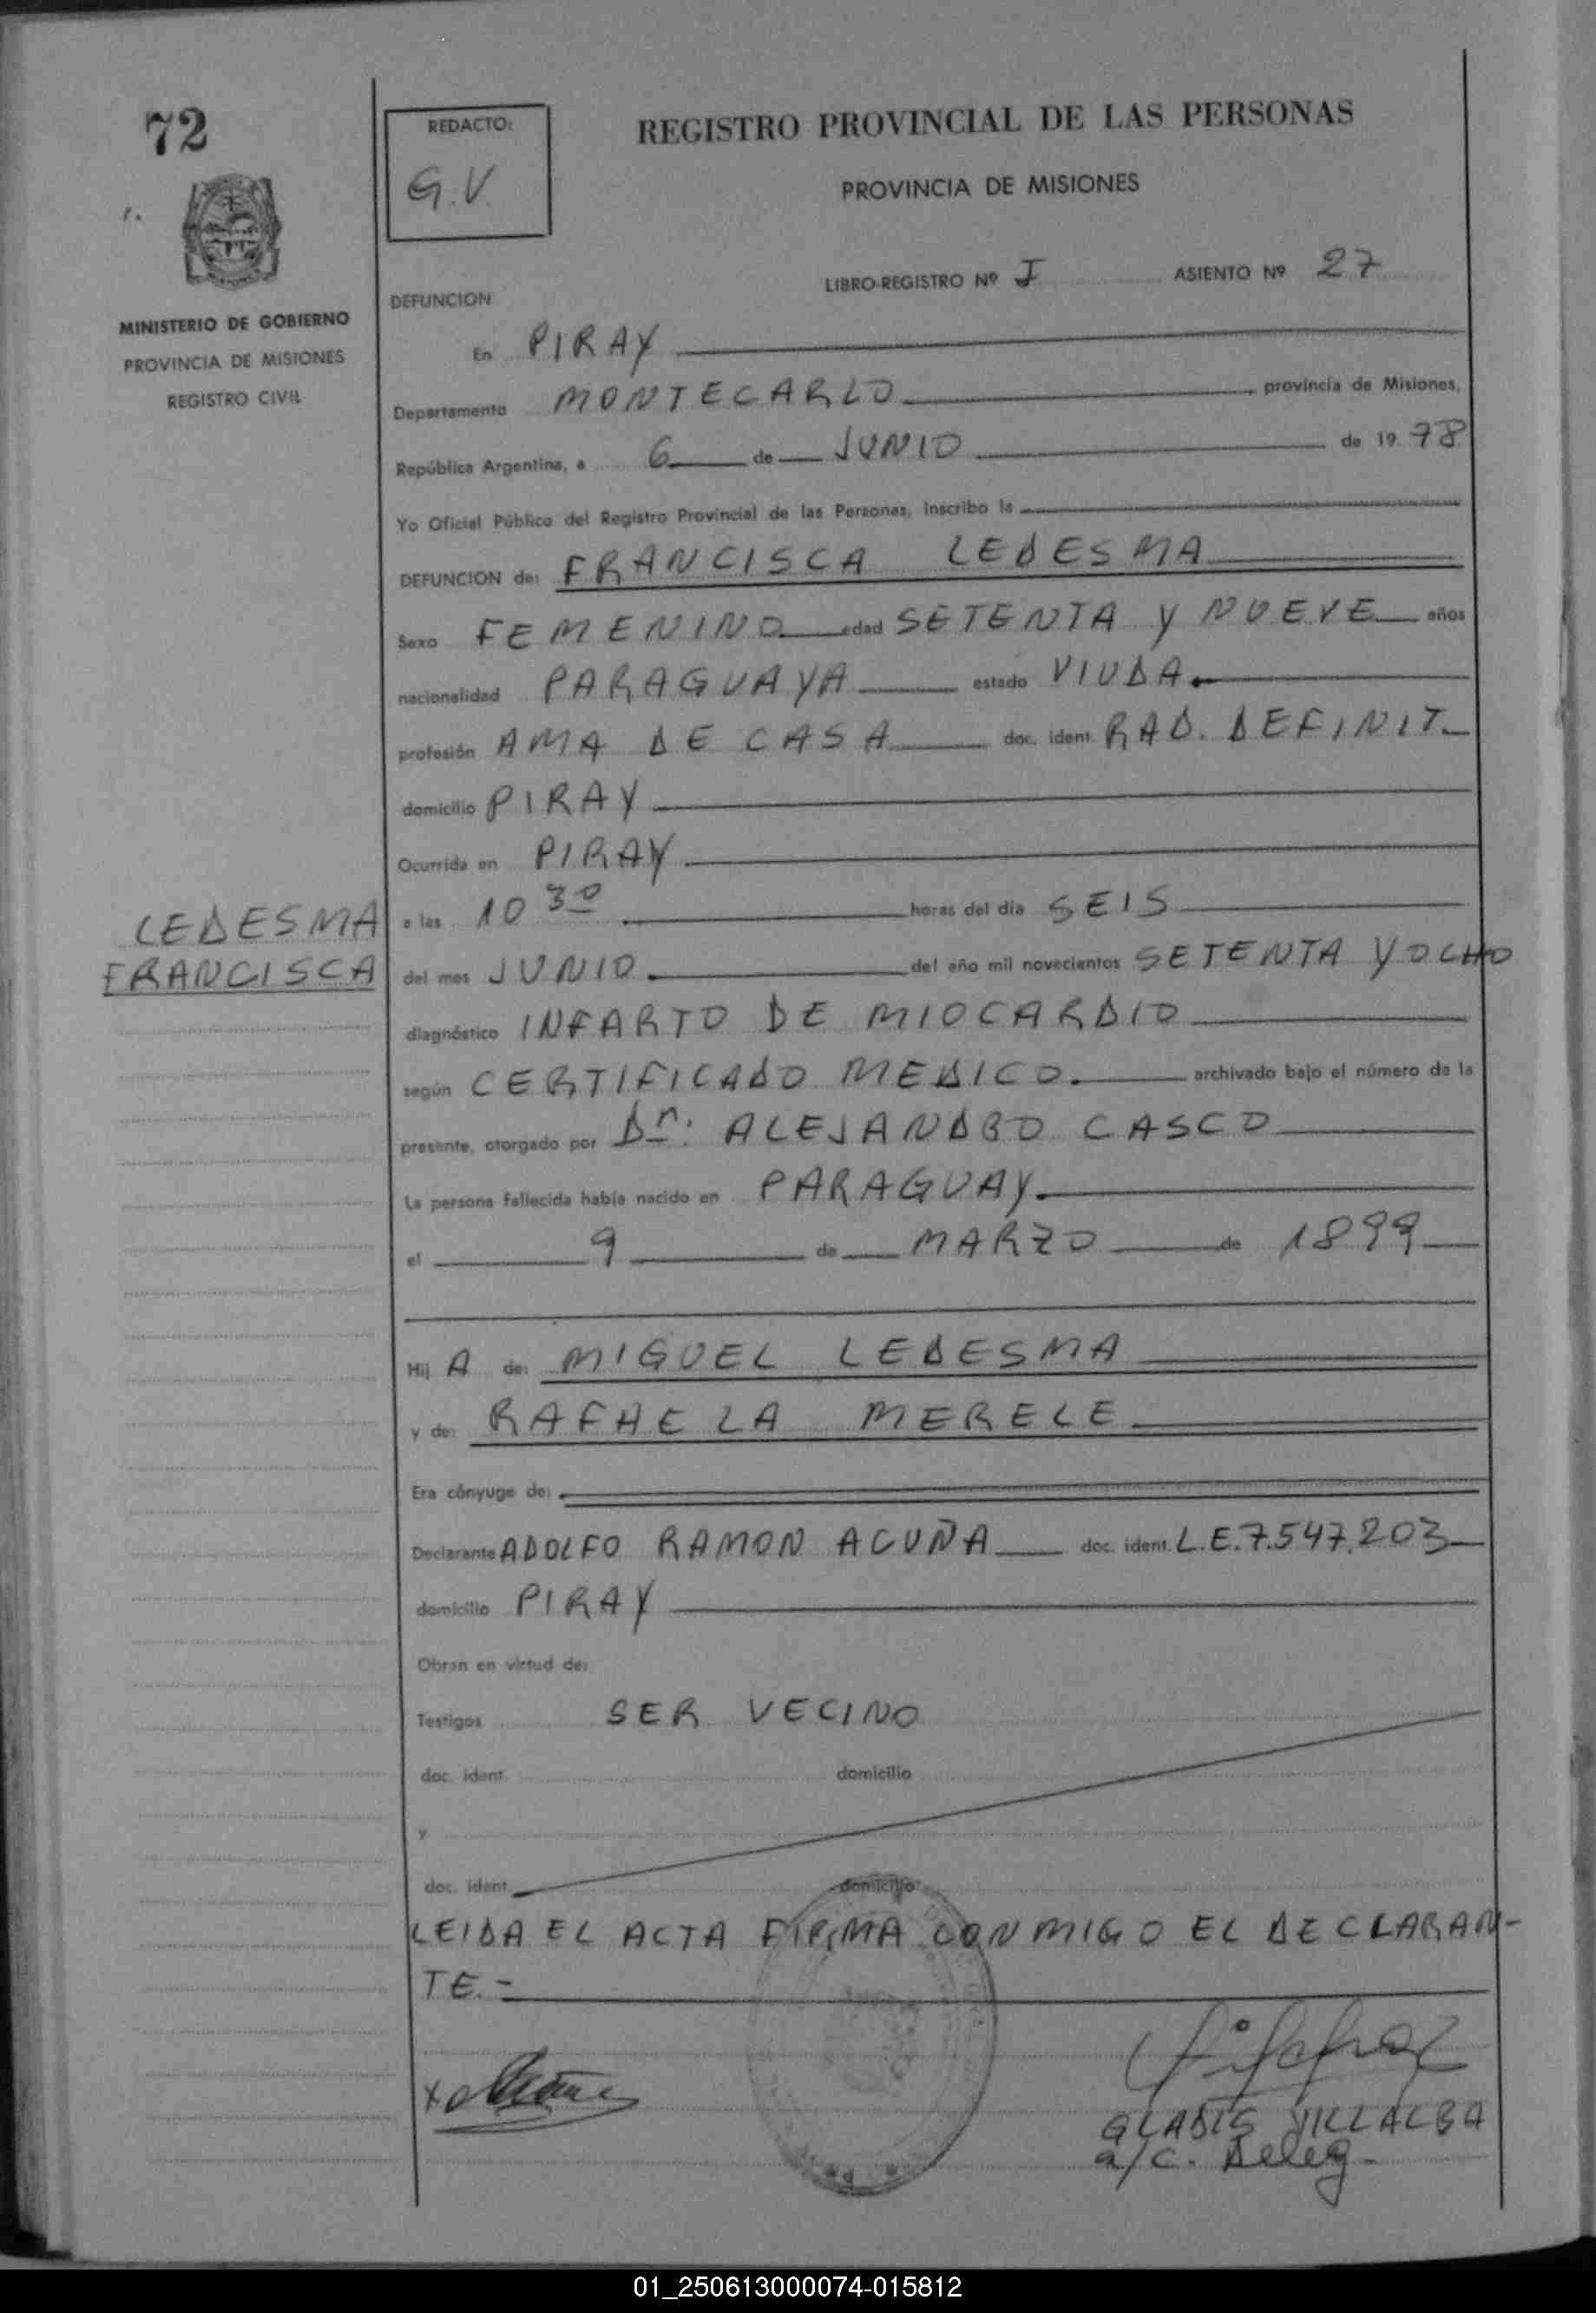 72
REDACTO:
G.V.
REGISTRO PROVINCIAL DE LAS PERSONAS
PROVINCIA DE MISIONES
LIBRO-REGISTRO Nº I ASIENTO Nº 27
MINISTERIO DE GOBIERNO
PROVINCIA DE MISIONES
REGISTRO CIVIL
DEFUNCION
En PIRAY
Departamento MONTECARLO provincia de Misiones,
República Argentina, a 6 de JUNIO de 1978
Yo Oficial Público del Registro Provincial de las Personas, Inscribo la
DEFUNCION de: FRANCISCA LEDESMA
Sexo FEMENINO edad SETENTA Y NUEVE años
nacionalidad PARAGUAYA estado VIUDA.
profesión AMA DE CASA doc. ident. RAD. DEFINIT.
domicilio PIRAY
Ocurrida en PIRAY
a las 10 30 horas del día SEIS
LEDESMA
FRANCISCA
del mes JUNIO. del año mil novecientos SETENTA Y OCHO
diagnóstico INFARTO DE MIOCARDIO
según CERTIFICADO MEDICO. archivado bajo el número de la
presente, otorgado por Dr: ALEJANDRO CASCO
La persona fallecida había nacido en PARAGUAY.
el 9 de MARZO de 1899
Hij A de: MIGUEL LEDESMA
y de: RAFAELA MERELE
Era cónyuge de:
Declarante ADOLFO RAMON ACUÑA doc. ident. L.E. 7.547.203
domicilio PIRAY
Obran en virtud de:
Testigos SER VECINO
doc. ident. domicilio
y
doc. ident. domicilio
LEIDA EL ACTA FIRMA CONMIGO EL DECLARAN-
TE.-
GLADIS VILLALBA
a/c. Deleg.
01_250613000074-015812